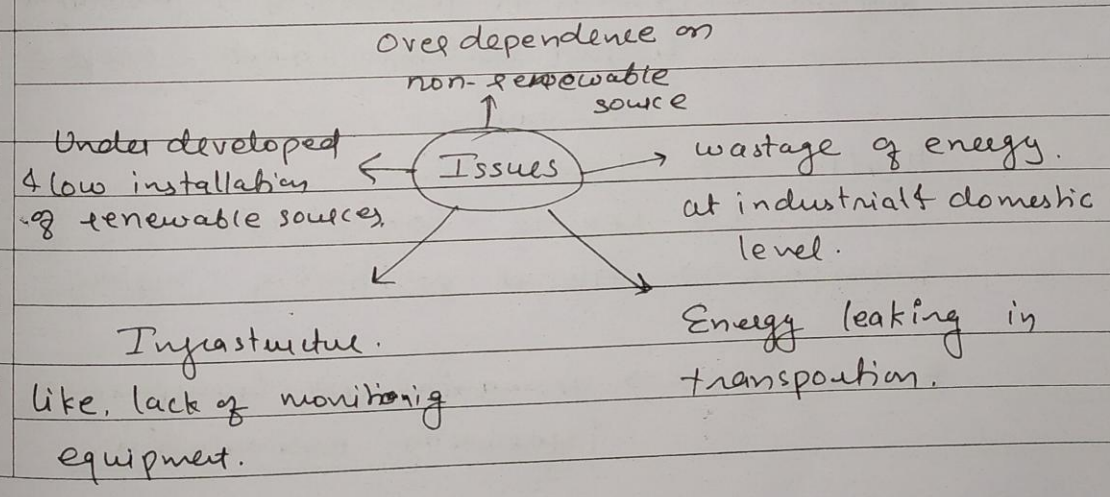 Over dependence on
non-renewable
source
Issues
Under developed
& low installation
of renewable sources,
wastage of energy.
at industrial & domestic
level.
Infrastructure.
like, lack of monitionig
equipment.
Energy leaking in
transportion.